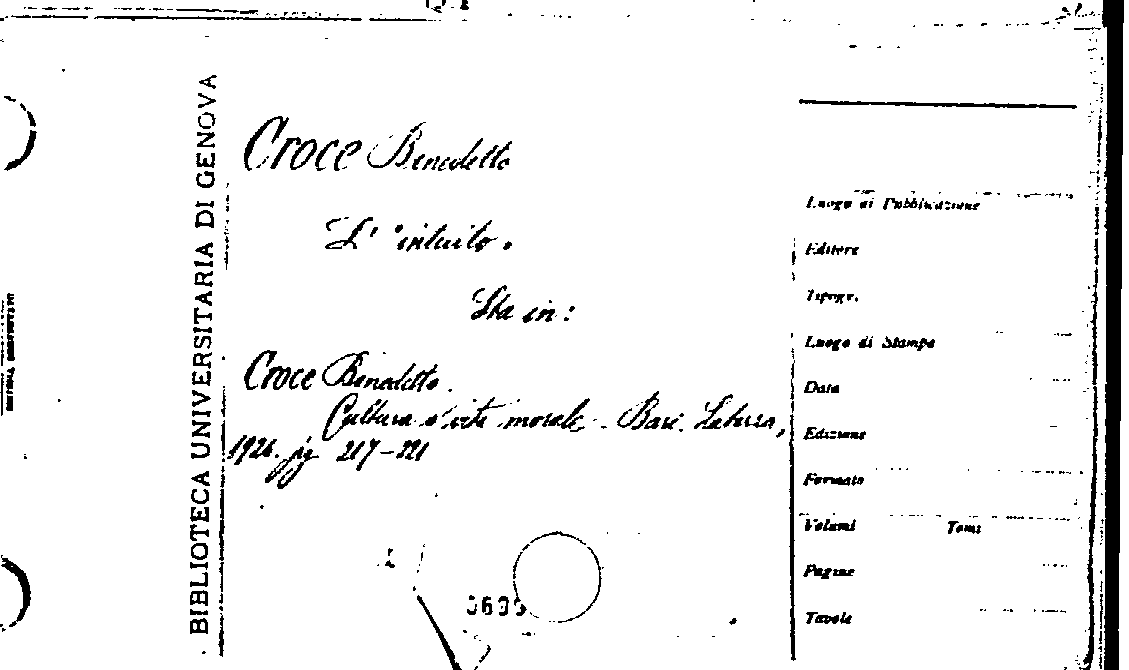 BIBLIOTECA UNIVERSITARIA DI GENOVA
Croce Benedetto
L' "intuito".
Sta in:
Croce Benedetto.
Cultura e vita morale - Bari. Laterza,
1926. pg 217-221
Luogo di Pubblicazione
Editore
Tipogr.
Luogo di Stampa
Data
Edizione
Formato
Volumi Tomi
Pagine
Tavole